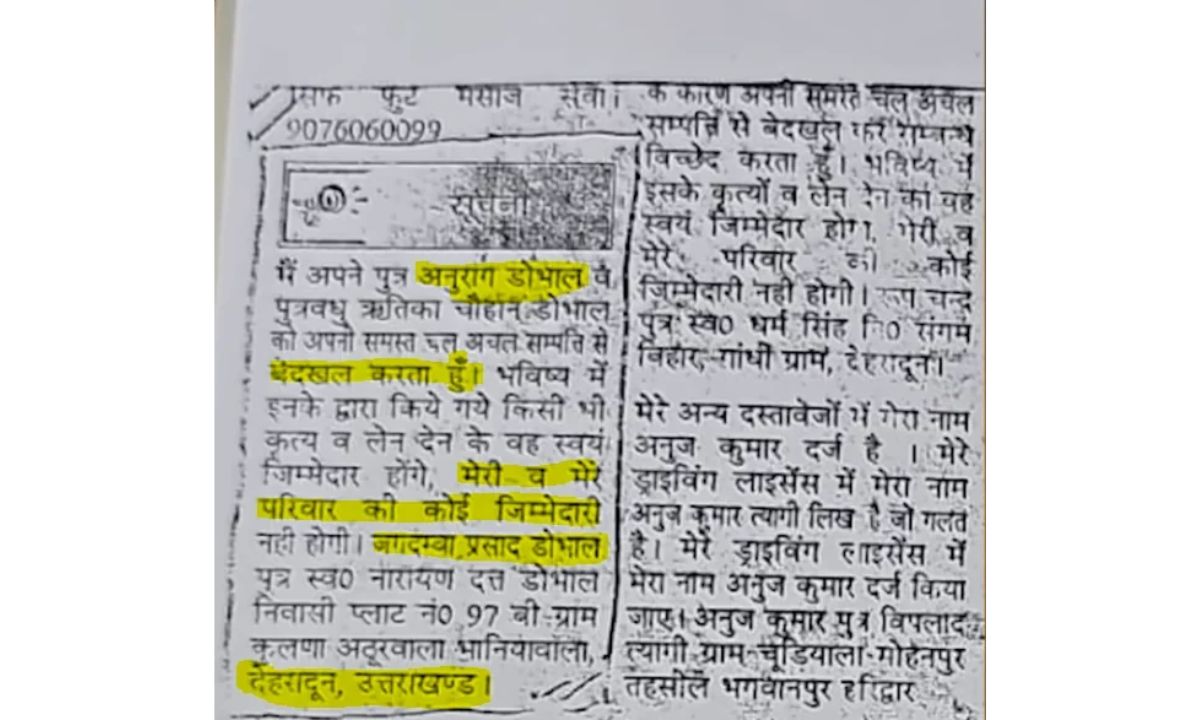 सिर्फ फुट मसाज सेवा।
9076060099
सूचना
मैं अपने पुत्र अनुराग डोभाल व
पुत्रवधु ऋतिका चौहान डोभाल
को अपनी समस्त चल अचल सम्पत्ति से
बेदखल करता हुँ। भविष्य में
इनके द्वारा किये गये किसी भी
कृत्य व लेन देन के वह स्वयं
जिम्मेदार होंगे, मेरी व मेरे
परिवार की कोई जिम्मेदारी
नही होगी। जगदम्बा प्रसाद डोभाल
पुत्र स्व0 नारायण दत्त डोभाल
निवासी प्लाट नं0 97 बी ग्राम
कलणा अठूरवाला भानियावाला,
देहरादून, उत्तराखण्ड।
के कारण अपनी समस्त चल अचल
सम्पत्ति से बेदखल कर सम्बन्ध
विच्छेद करता हूँ। भविष्य में
इसके कृत्यों व लेन देन का वह
स्वयं जिम्मेदार होगा, मेरी व
मेरे परिवार की कोई
जिम्मेदारी नही होगी। रूप चन्द्र
पुत्र स्व0 धर्म सिंह नि0 संगम
विहार, गांधी ग्राम, देहरादून।
मेरे अन्य दस्तावेजों में मेरा नाम
अनुज कुमार दर्ज है । मेरे
ड्राइविंग लाइसेंस में मेरा नाम
अनुज कुमार त्यागी लिख है जो गलत
है। मेरे ड्राइविंग लाइसेंस में
मेरा नाम अनुज कुमार दर्ज किया
जाए। अनुज कुमार पुत्र विपलाद
त्यागी ग्राम-चूड़ियाला-मोहनपुर
तहसील भगवानपुर हरिद्वार